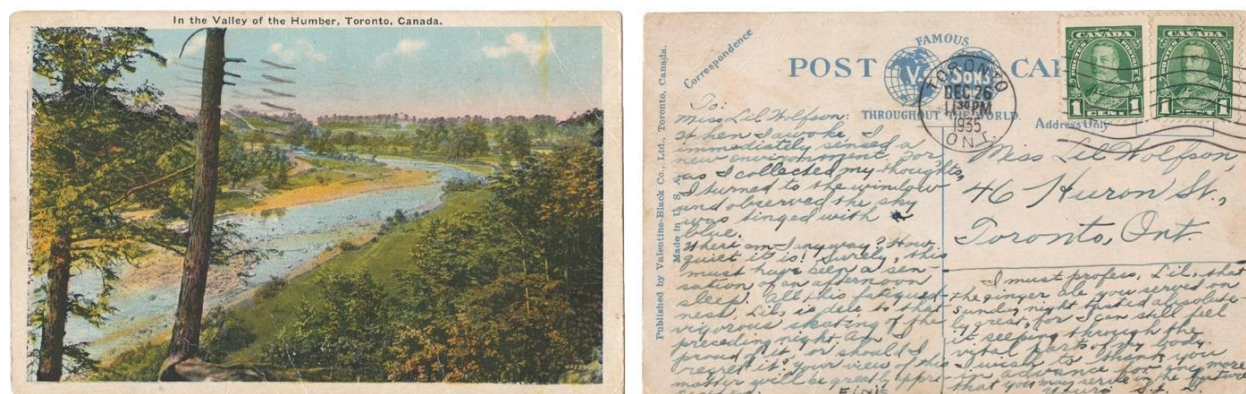 In the Valley of the Humber, Toronto, Canada.
Published by Valentine-Black Co., Ltd., Toronto, Canada.
Made in U. S. A.
Correspondence
FAMOUS
POST CAR
V. & Sons
THROUGHOUT THE WORLD.
Address Only
TORONTO
DEC 26
11 30 PM
1935
ONT.
CANADA
POSTES POSTAGE
1 CENT 1
CANADA
POSTES POSTAGE
1 CENT 1
To:
Miss Lil Wolfson:
When I awoke I
immediately sensed a
new environment for
as I collected my thoughts,
I turned to the window
and observed the sky
was tinged with a
blue.
Where am I anyway? How
quiet it is! Surely, this
must have been a sen-
sation of an afternoon
sleep. All this fatigued-
ness, Lil, is due to the
vigorous skating of the
preceding night. Am I
proud of it or should I
regret it? Your view of this
matter will be greatly appre-
ciated.
Finis
Miss Lil Wolfson,
46 Huron St.,
Toronto, Ont.
I must profess, Lil, that
the ginger ale you served on
Sunday night tasted absolute-
ly great, for I can still feel
it seeping through the
vital parts of my body.
I wish to thank you
in advance for any more
that you may serve in the future
Yours